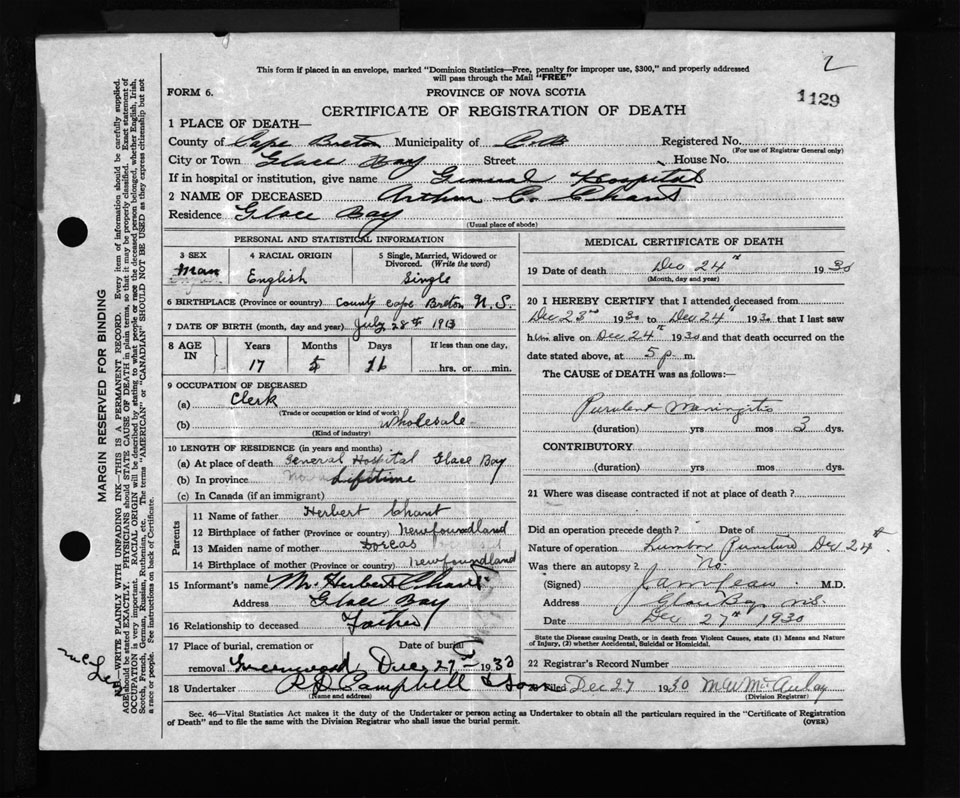 2
This form if placed in an envelope, marked "Dominion Statistics—Free, penalty for improper use, $300," and properly addressed
will pass through the Mail "FREE"
FORM 6.
PROVINCE OF NOVA SCOTIA
1129
CERTIFICATE OF REGISTRATION OF DEATH
1 PLACE OF DEATH—
County of Cape Breton Municipality of C.B. Registered No.
(For use of Registrar General only)
City or Town Glace Bay Street House No.
If in hospital or institution, give name General Hospital
2 NAME OF DECEASED Arthur C. Chant
Residence Glace Bay
(Usual place of abode)
PERSONAL AND STATISTICAL INFORMATION
3 SEX 4 RACIAL ORIGIN 5 Single, Married, Widowed or Divorced. (Write the word)
Man English Single
6 BIRTHPLACE (Province or country) County Cape Breton N.S.
7 DATE OF BIRTH (month, day and year) July 28th 1913
8 AGE IN Years Months Days If less than one day,
17 5 hrs. or min.
9 OCCUPATION OF DECEASED
(a) Clerk
(Trade or occupation or kind of work)
(b) Wholesale
(Kind of industry)
10 LENGTH OF RESIDENCE (in years and months)
(a) At place of death General Hospital Glace Bay
(b) In province Lifetime
(c) In Canada (if an immigrant)
Parents
11 Name of father Herbert Chant
12 Birthplace of father (Province or country) Newfoundland
13 Maiden name of mother Dorcas
14 Birthplace of mother (Province or country) Newfoundland
15 Informant's name Mr Herbert Chant
Address Glace Bay
16 Relationship to deceased Father
17 Place of burial, cremation or Date of burial
removal Greenwood Dec 27th 1930
18 Undertaker R D Campbell & Sons
(Name and address)
MEDICAL CERTIFICATE OF DEATH
19 Date of death Dec 24th 1930
(Month, day and year)
20 I HEREBY CERTIFY that I attended deceased from
Dec 23rd 1930 to Dec 24th 1930 that I last saw
him alive on Dec 24th 1930 and that death occurred on the
date stated above, at 5 p. m.
The CAUSE of DEATH was as follows:—
Purulent Meningitis
(duration) yrs mos 3 dys.
CONTRIBUTORY
(duration) yrs mos dys.
21 Where was disease contracted if not at place of death?
Did an operation precede death? Date of
Nature of operation Lumbar Puncture Dec 24th
Was there an autopsy? No
(Signed) M.D.
Address Glace Bay N.S.
Date Dec 27th 1930
State the Disease causing Death, or in death from Violent Causes, state (1) Means and Nature
of Injury, (2) whether Accidental, Suicidal or Homicidal.
22 Registrar's Record Number
Filed Dec 27 1930 M W McAulay
(Division Registrar)
Sec. 46—Vital Statistics Act makes it the duty of the Undertaker or person acting as Undertaker to obtain all the particulars required in the "Certificate of Registration
of Death" and to file the same with the Division Registrar who shall issue the burial permit.
(OVER)
MARGIN RESERVED FOR BINDING
N.B.—WRITE PLAINLY WITH UNFADING INK—THIS IS A PERMANENT RECORD. Every item of information should be carefully supplied.
AGE should be stated EXACTLY. PHYSICIANS should STATE CAUSE OF DEATH in plain terms, so that it may be properly classified. Exact statement of
OCCUPATION is very important. RACIAL ORIGIN will be described by stating to what people or race the deceased person belonged, whether English, Irish,
Scotch, French, German, Russian, Ruthenian, etc. The terms "AMERICAN" or "CANADIAN" SHOULD NOT BE USED as they express citizenship but not
a race or people. See Instructions on back of Certificate.